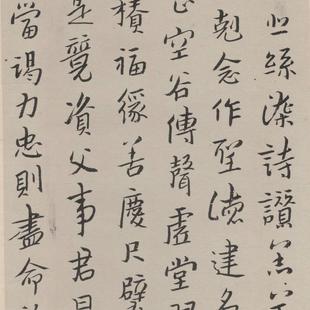 悲絲染詩讚羔羊
剋念作聖德建名
正空谷傳聲虛堂習
積福緣善慶尺璧
是競資父事君曰
當竭力忠則盡命